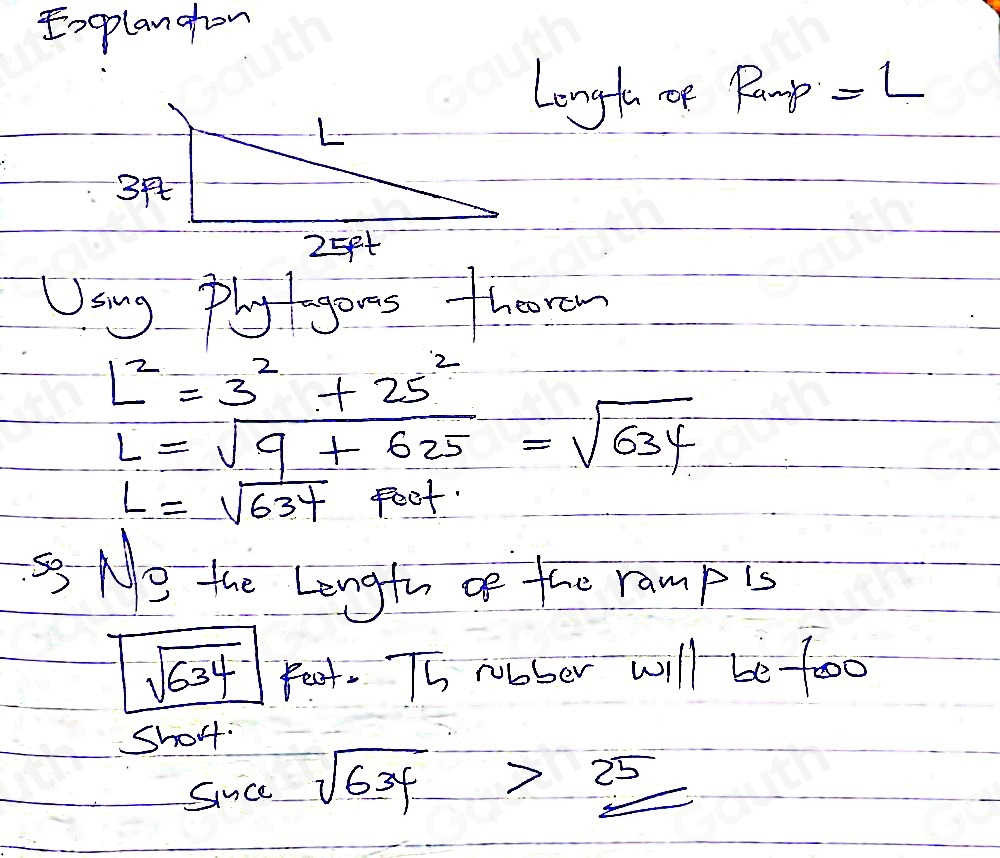 Explanation
Length of Ramp = L
L
3ft
25ft
Using Phytagoras theorem
L² = 3² + 25²
L = √9 + 625 = √634
L = √634 Feet.
so No the Length of the ramp is
√634 feet. Th rubber will be too
Short.
Since √634 > 25